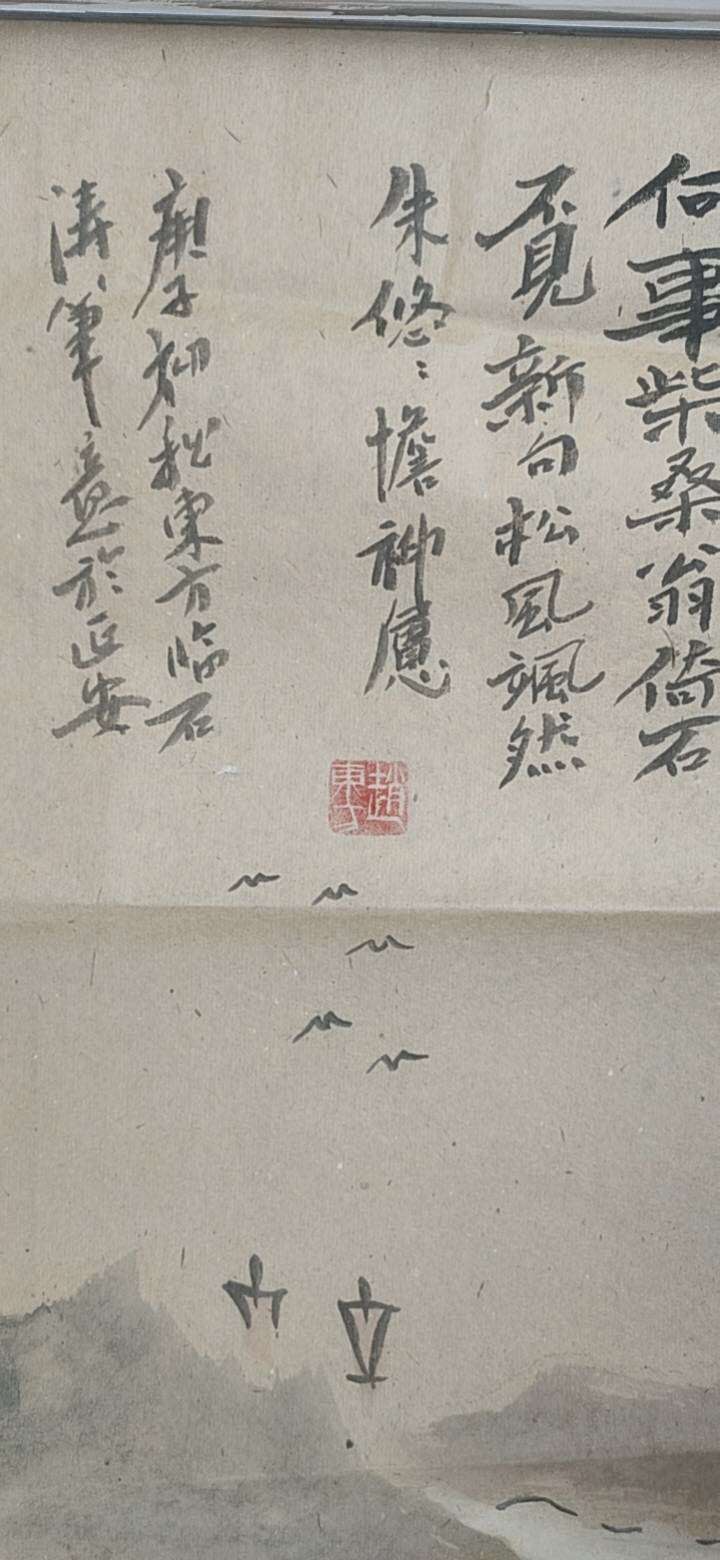 何事柴桑翁倚石
覓新句松風颯然
朱悠〻憺神慮
庚子初秋東方临石
濤筆意於延安
趙東方